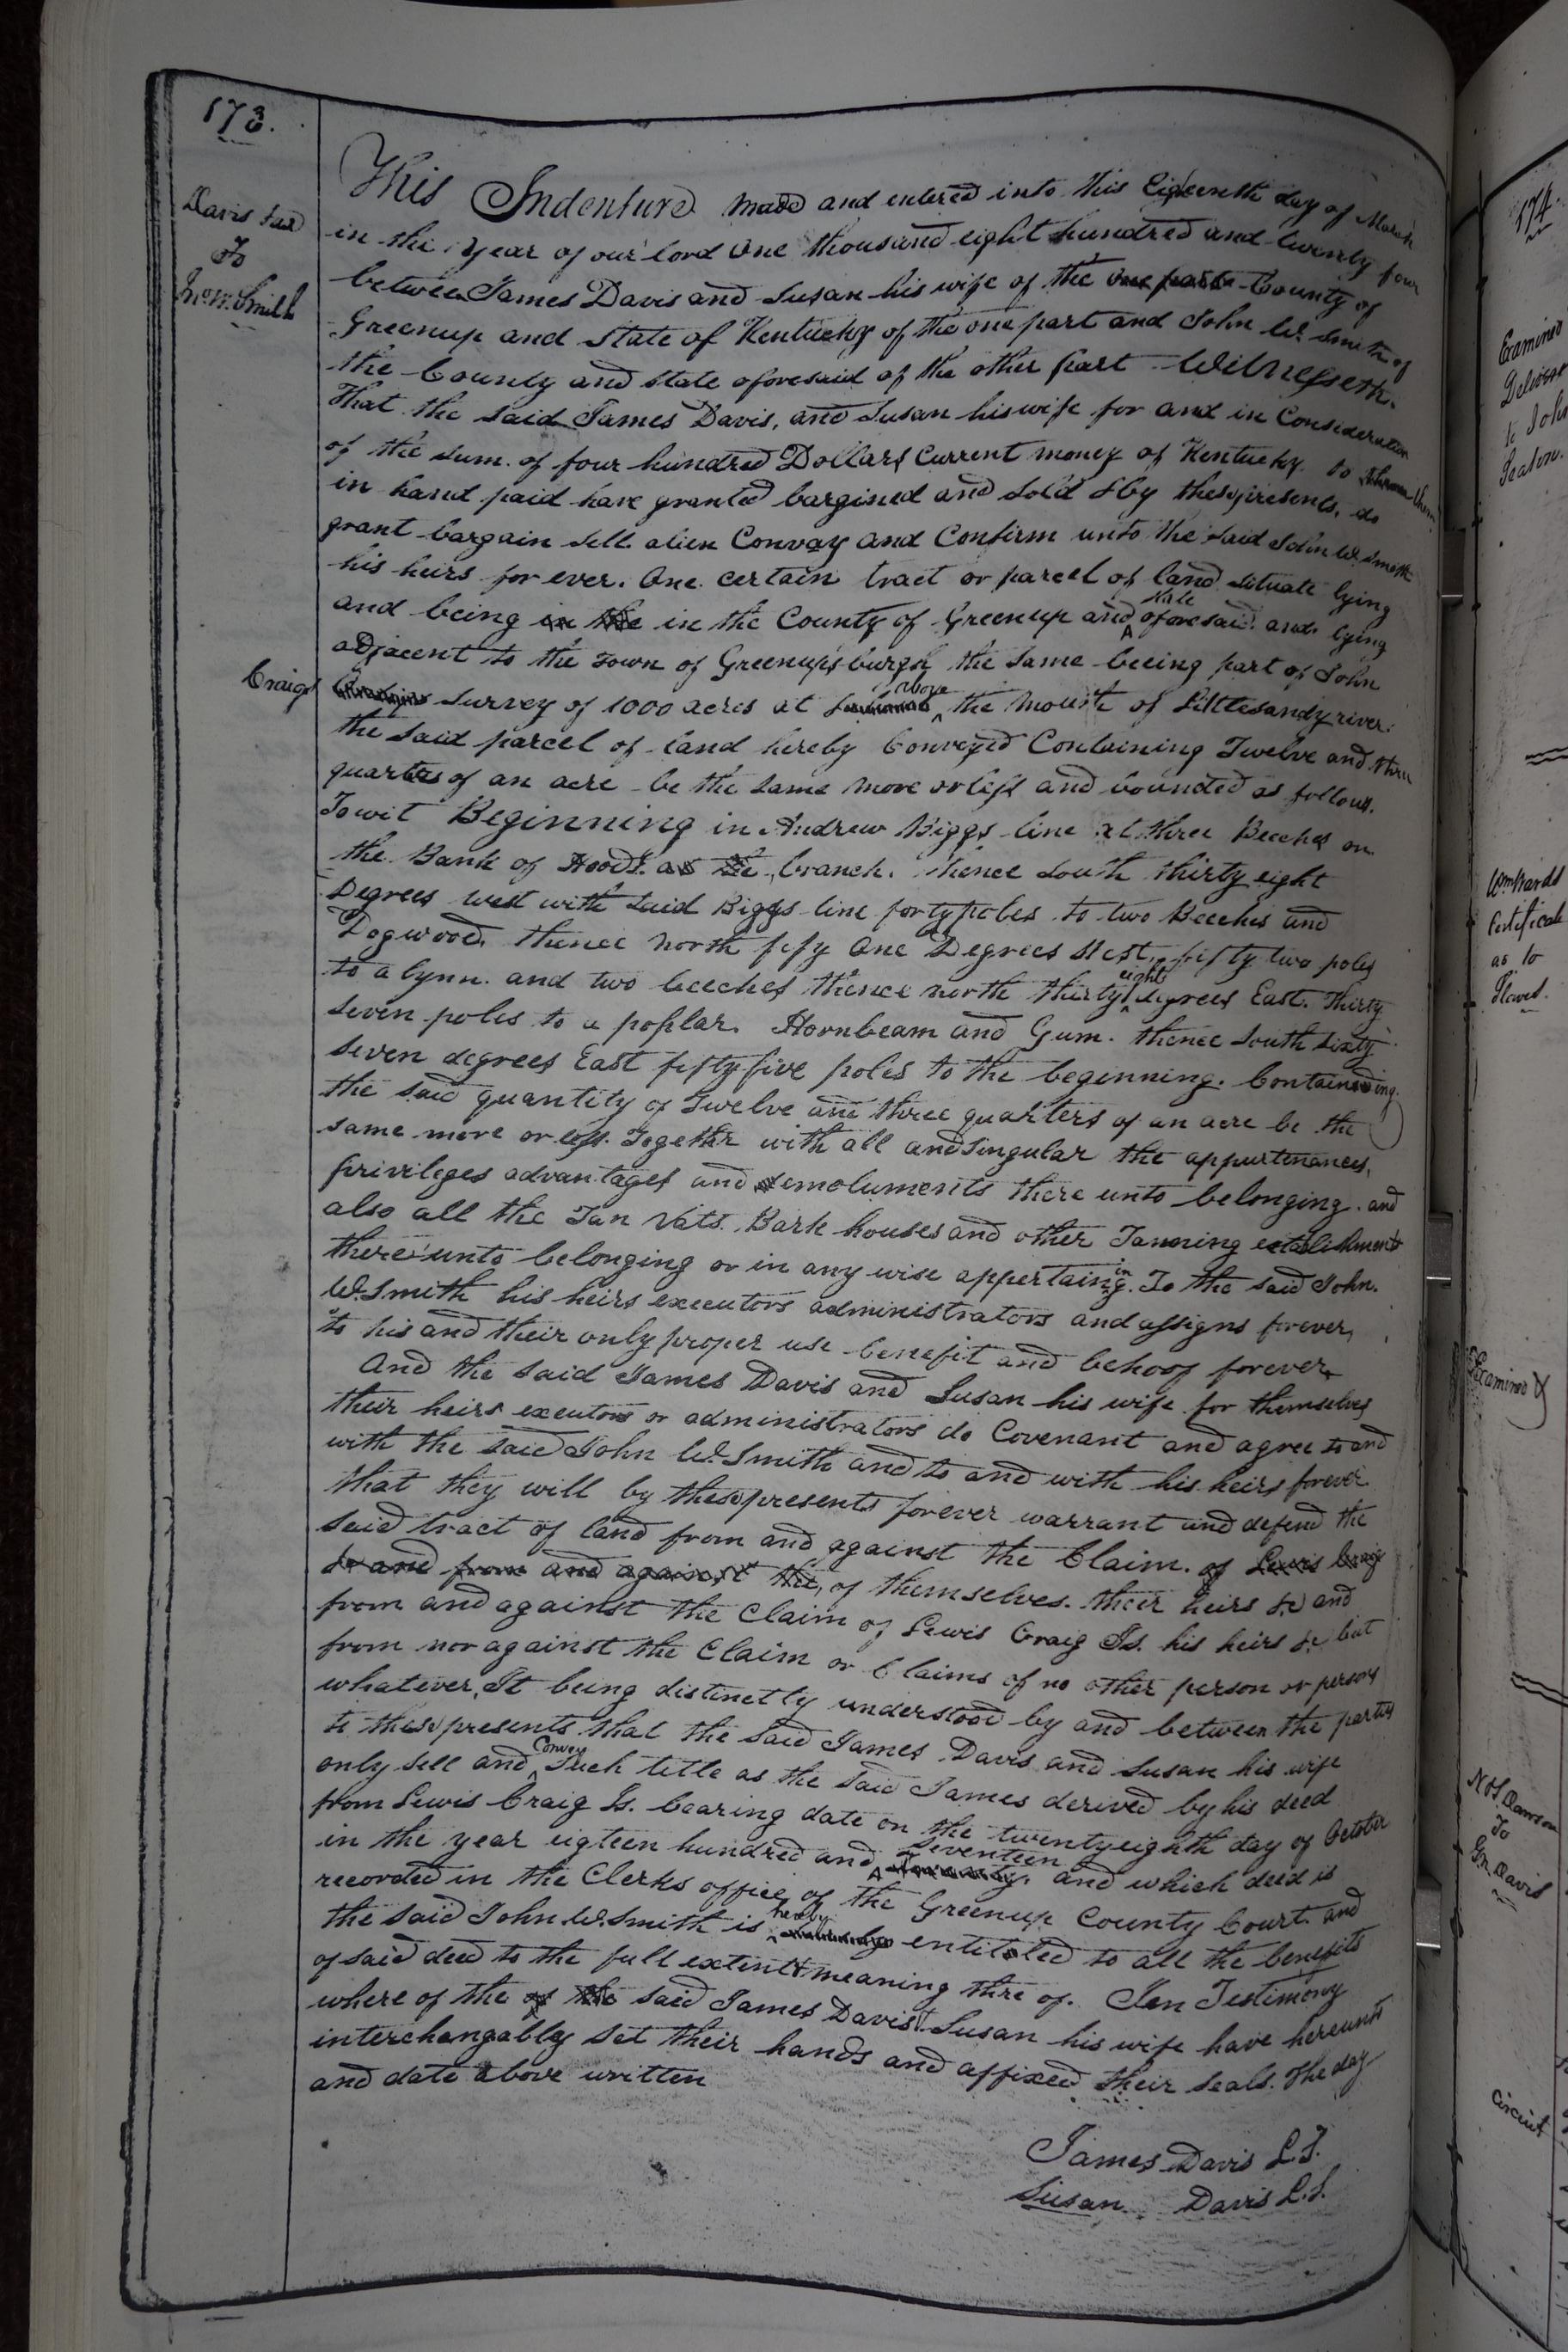 173.
Davis &ux
To
Jno. W. Smith
This Indenture made and entered into this Eigteenth day of March
in the year of our lord One thousand eight hundred and twenty four
between James Davis and Susan his wife of the one part County of
Greenup and State of Kentucky of the one part and John W. Smith of
the County and State aforesaid of the other part Witnesseth.
That the said James Davis, and Susan his wife for and in Consideration
of the sum of four hundred Dollars Current money of Kentucky to them
in hand paid have granted bargined and sold & by these presents, do
grant bargain sell alien Convay and Confirm unto the said John W. Smith
his heirs for ever. One certain tract or parcel of land situate lying
and being in the in the County of Greenup and State aforesaid. and lying
adjacent to the Town of Greenupsburgh the same beeing part of John
Craigs survey of 1000 acres at above the mouth of Littlesandy river.
the said parcel of land hereby Conveyed Containing Twelve and three
quarters of an acre be the same more or less and bounded as follows.
Towit Beginning in Andrew Biggs line at three Beeches on
the Bank of Hoods branch. thence South thirty eight
Degrees west with said Biggs line forty poles to two Beeches and
Dogwood. thence north fify one Degrees West, fifty two poles
to a lynn. and two beeches thence north thirty eight degrees East. Thirty
seven poles to a poplar. Hornbeam and Gum. thence South sixty
seven degrees East fifty five poles to the beginning. Containing
the said quantity of Twelve and three quarters of an acre be the
same more or less. Together with all and singular the appurtenances,
privileges advantages and emoluments there unto belonging. and
also all the Tan Vats. Bark houses and other Tanning establishments
thereunto belonging or in any wise appertaining. To the said John.
W. Smith his heirs executors administrators and assigns forever,
to his and their only proper use benefit and behoof forever
And the said James Davis and Susan his wife for themselves
their heirs exeutors or administrators do Covenant and agree to and
with the said John W. Smith and to and with his heirs forever
that they will by these presents forever warrant and defend the
said tract of land from and against the Claim. of Lewis Craig
Sr and from and against the, of themselves. their heirs &c and
from and against the Claim of Lewis Craig Is. his heirs &c but
from nor against the Claim or Claims of no other person or persons
whatever, It being distinctly understood by and between the partys
to these presents that the said James Davis and Susan his wife
only sell and Convey Such title as the said James derived by his deed
from Lewis Craig Is. bearing date on the twenty eighth day of October
in the year eigteen hundred and Seventeen and which deed is
recorded in the Clerks office of the Greenup County Court. and
the said John W. Smith is hereby entitoled to all the benefits
of said deed to the full extent & meaning there of. In Testimony
where of the of the said James Davis & Susan his wife have hereunto
interchangably set their hands and affixed their seals. The day
and date above written
James Davis L.S.
Susan Davis L.S.
174.
Examined
Deliver
to John
Seaton.
Wm Wards
Certificate
as to
Examined
To
Davis
Circuit